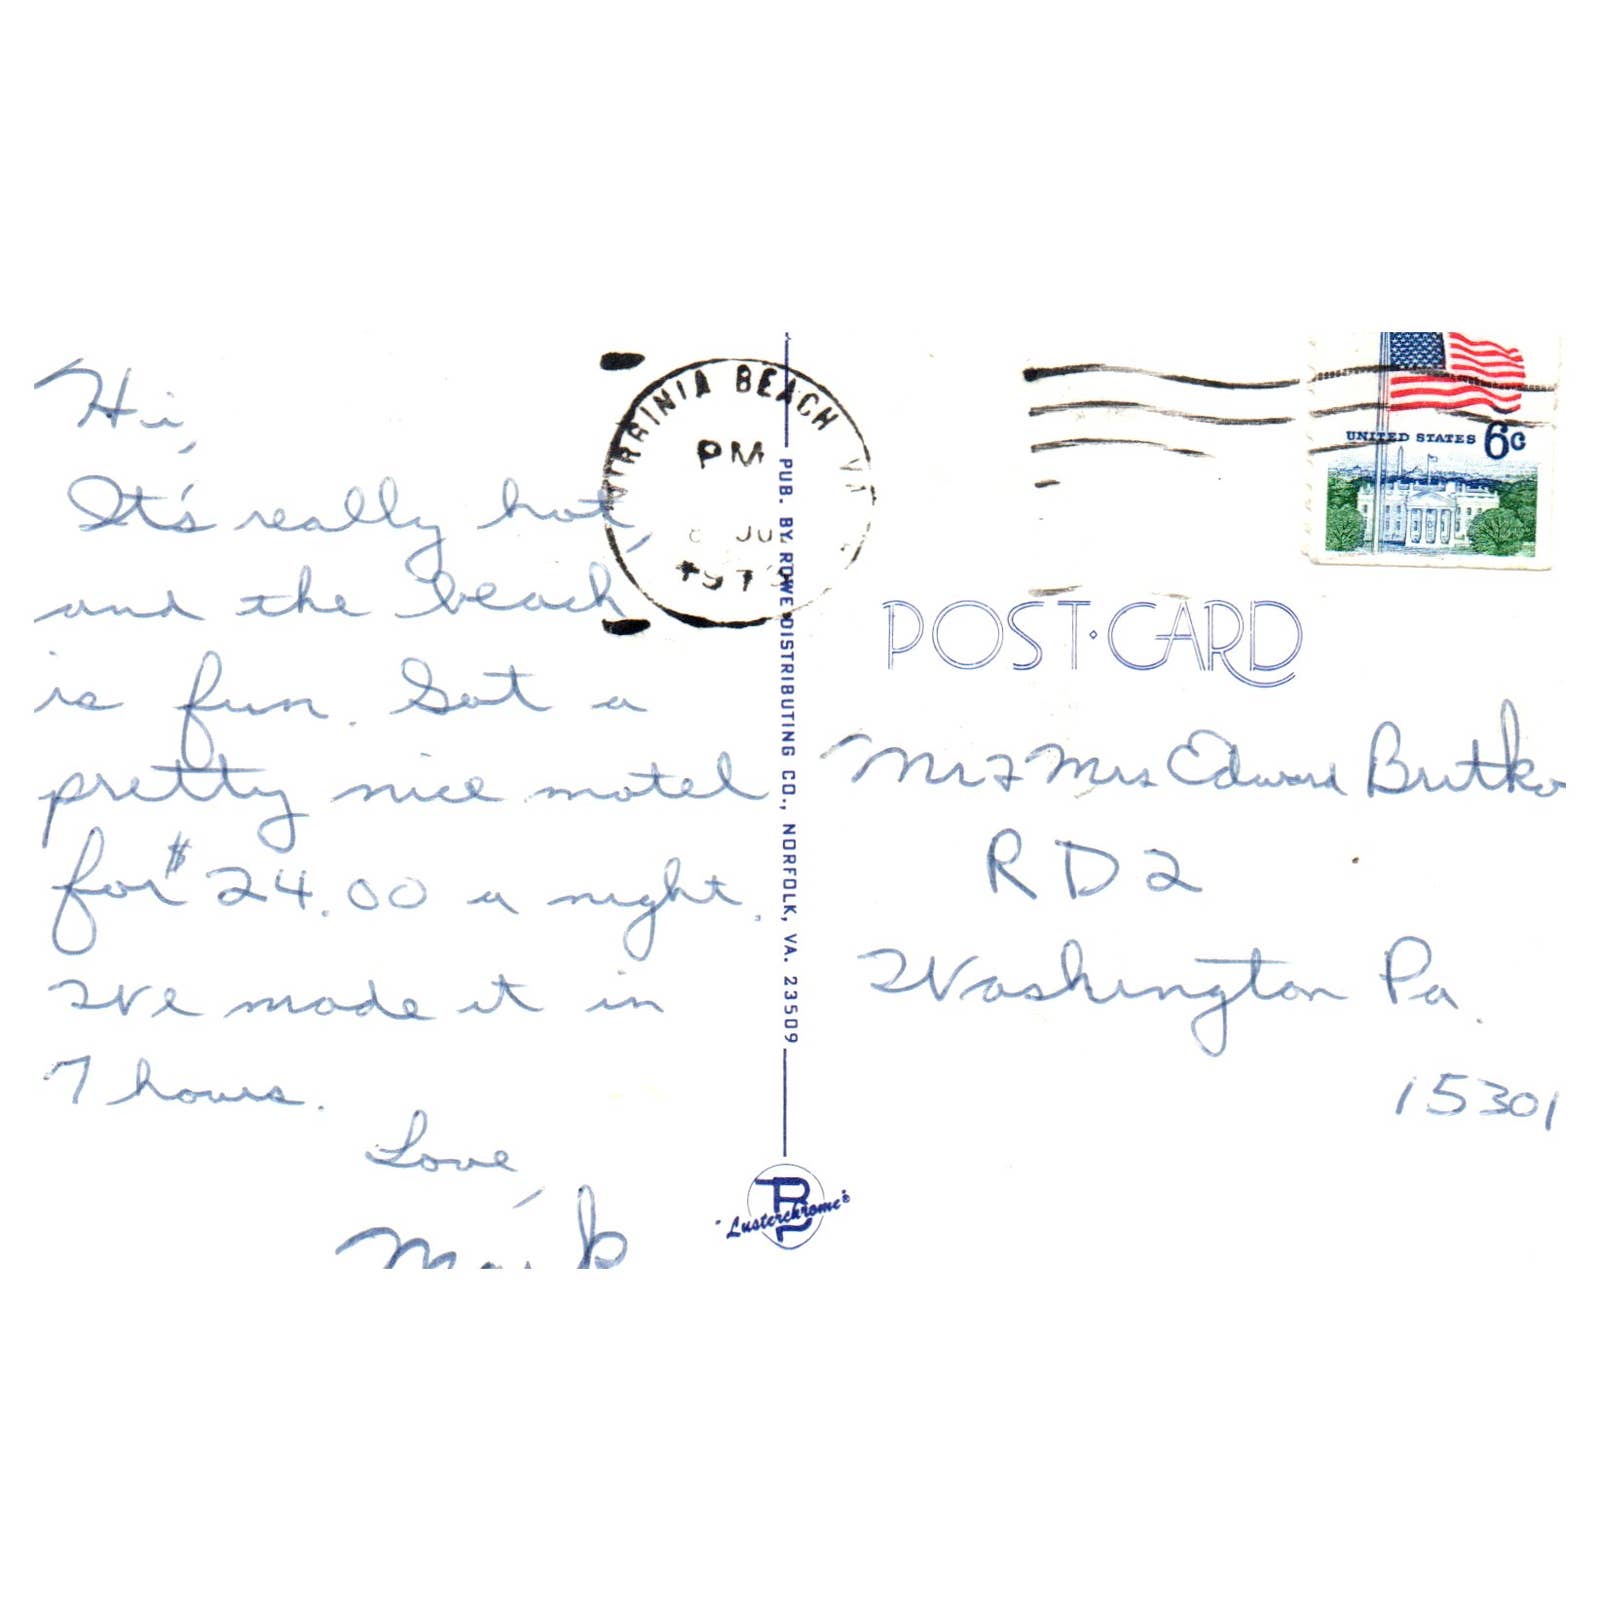 Hi,
It's really hot,
and the beach
is fun. Got a
pretty nice motel
for $24.00 a night.
We made it in
7 hours.
Love,
Mark
VIRGINIA BEACH VA
PM
JUL
197
PUB. BY ROWE DISTRIBUTING CO., NORFOLK, VA. 23509
"Lusterchrome"®
UNITED STATES 6c
POST·CARD
Mr & Mrs Edward Butko
RD2
Washington Pa.
15301